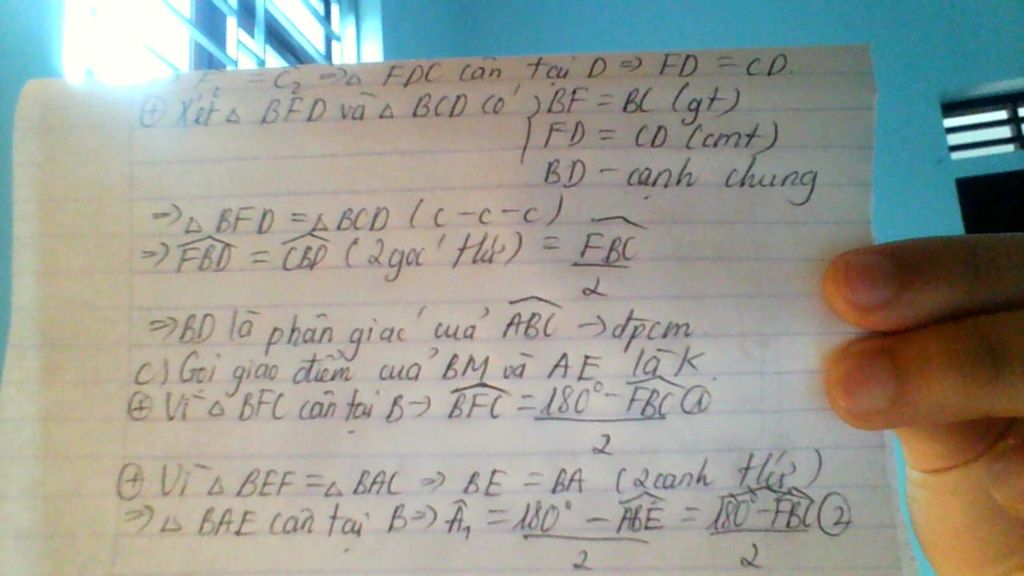 F̂₂ = Ĉ₂ => △ FDC cân tại D => FD = CD.
⊕ Xét △ BFD và △ BCD có { BF = BC (gt)
FD = CD (cmt)
BD - cạnh chung
=> △ BFD = △ BCD (c-c-c)
=> \widehat{FBD} = \widehat{CBD} (2góc tứ) = \frac{\widehat{FBC}}{2}
=> BD là phân giác của \widehat{ABC} -> đpcm
c) Gọi giao điểm của BM và AE là K.
⊕ Vì △ BFC cân tại B -> \widehat{BFC} = \frac{180° - \widehat{FBC}}{2} ①
⊕ Vì △ BEF = △ BAC => BE = BA (2cạnh tứ)
=> △ BAE cân tại B -> Â₁ = \frac{180° - \widehat{ABE}}{2} = \frac{180° - \widehat{FBC}}{2} ②